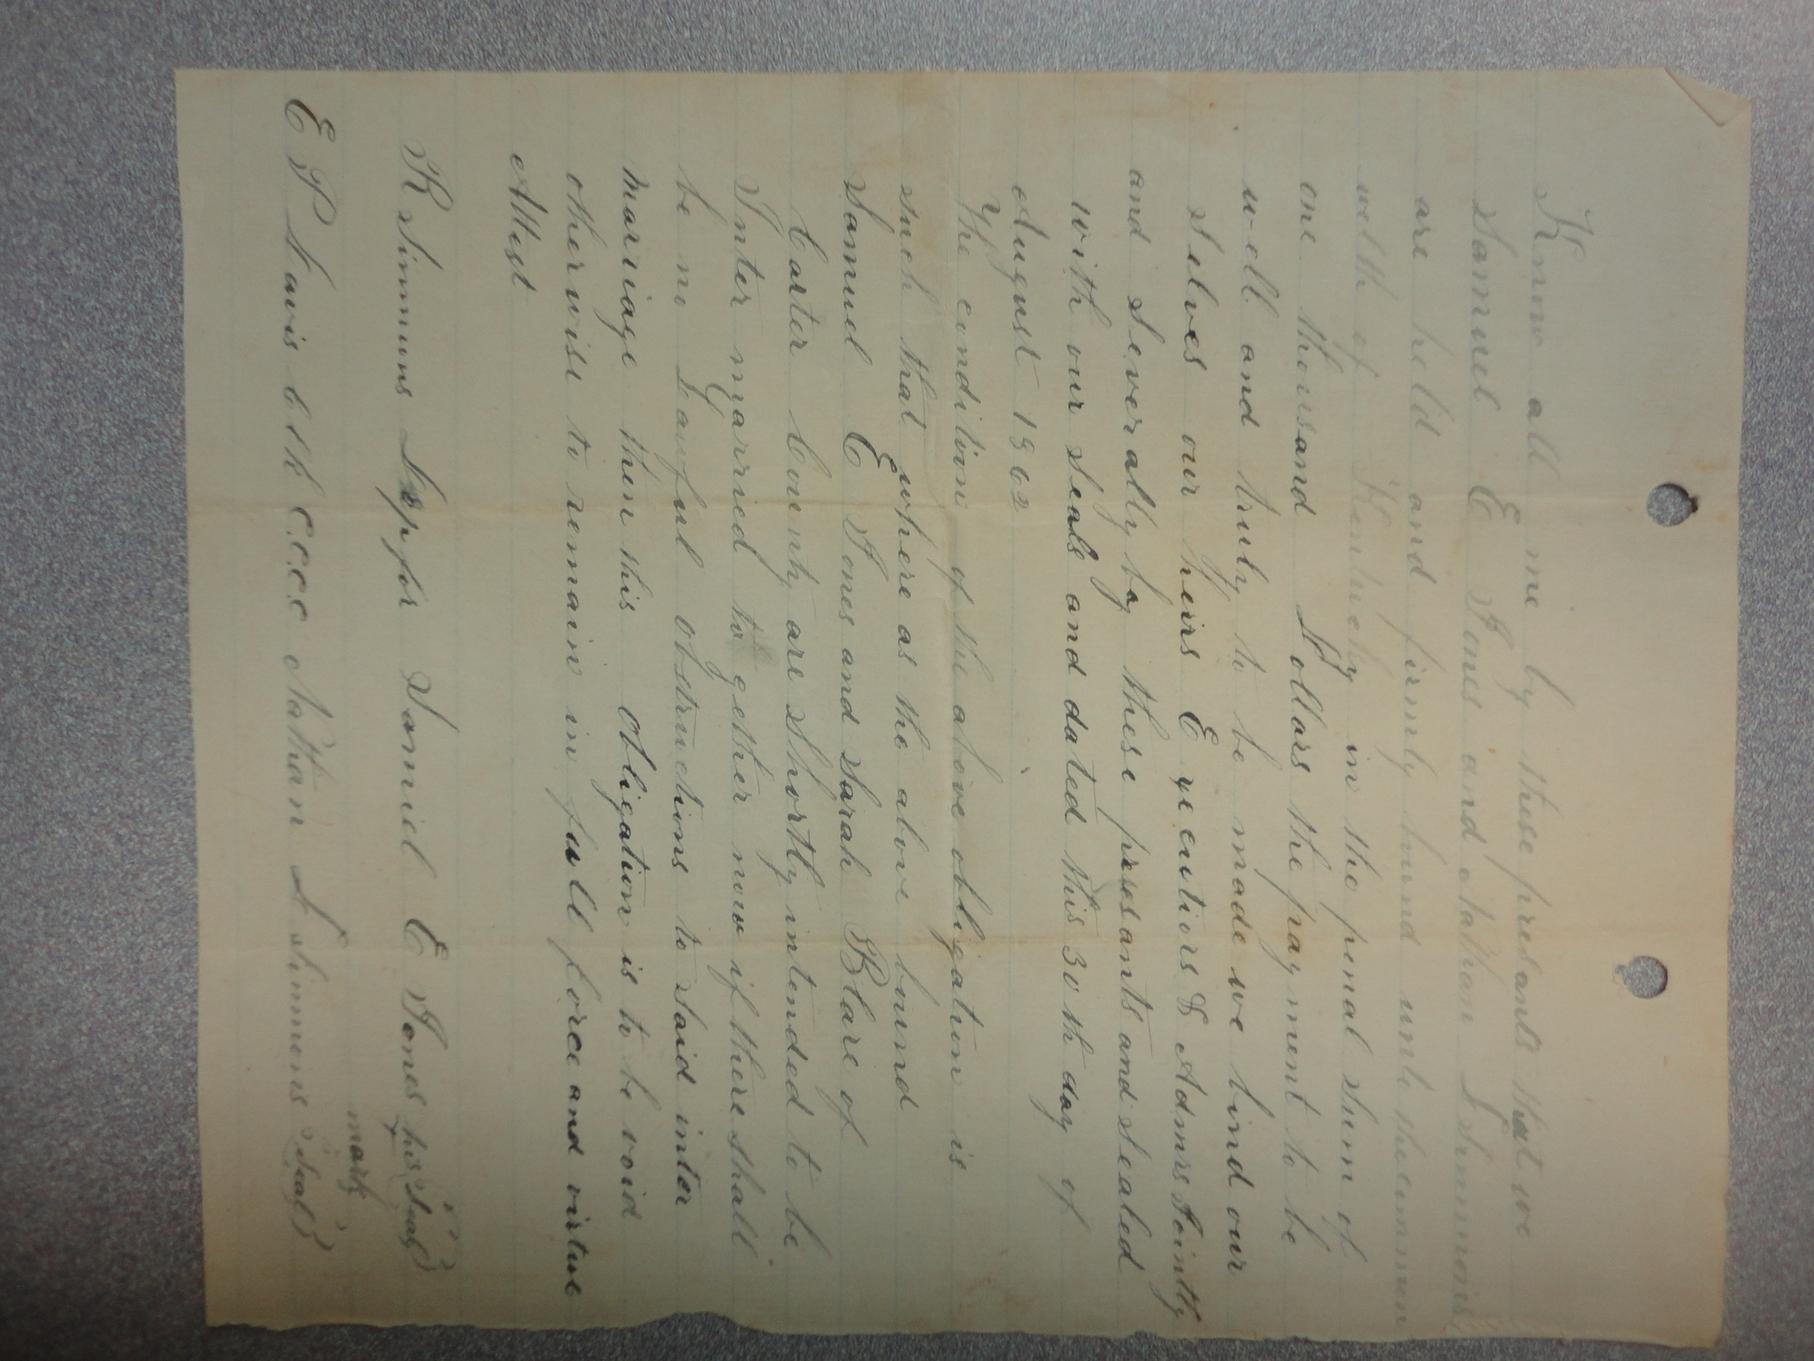 Know all me by these presants that we
Samuel E Jones and Nathan L Simmons
are held and firmly bound unto the common
welth of Kentucky in the penal sum of
one thousand Dollars the payment to be
well and truly to be made we bind our
selves our heirs Executors & Admrs Jointly
and Severally by these presants and sealed
with our seals and dated this 30th day of
August 1862
The condition of the above obligation is
such that whereas the above bound
Samuel E Jones and Sarah Blare of
Carter County are shortly intended to be
Inter married to gether now if there shall
be no Lawful obstructions to said inter
marriage then this obligation is to be void
otherwise to remain in full force and virtue
Attest
R Simmons Dep for Samiel E Jones his (Seal)
mark
E P Davis Clk C.C.C Nathan L Simmons (Seal)